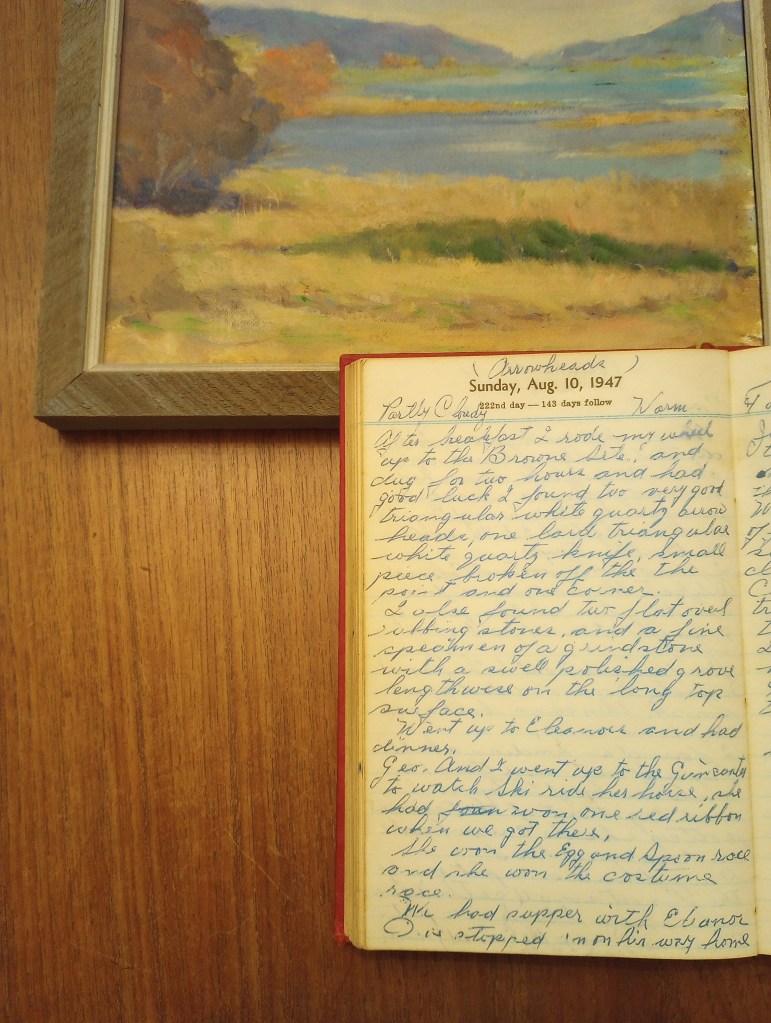 (Arrowheads)
Sunday, Aug. 10, 1947
222nd day — 143 days follow
Partly Cloudy Warm
After breakfast I rode my wheel
up to the Browne Site, and
dug for two hours and had
good luck I found two very good
triangular white quartz arrow
heads, one large triangular
white quartz knife, small
piece broken off the the
point and one corner.
I also found two flat oval
rubbing stones, and a fine
specimen of a grindstone
with a swell polished grove
lengthwise on the long top
surface.
Went up to Eleanors and had
dinner.
Geo. And I went up to the
to watch Ski ride her horse, she
had won one red ribbon
when we got there,
She won the Egg and Spoon race
and she won the costume
race.
We had supper with Eleanor
stopped in on his way home